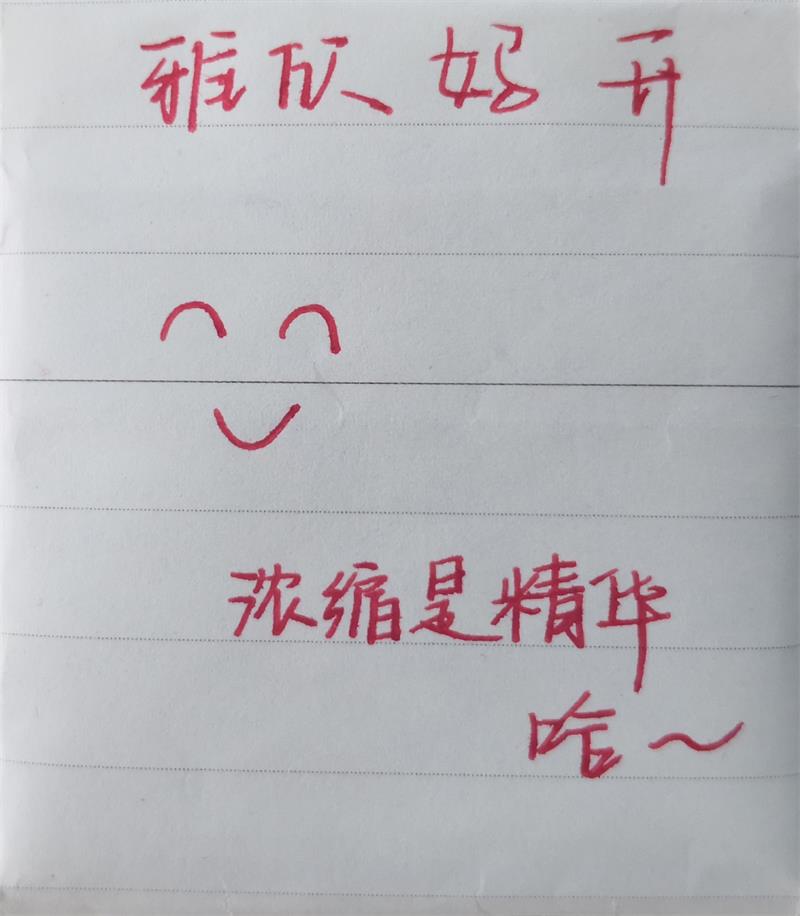 雅欣妈开
浓缩是精华
哈~